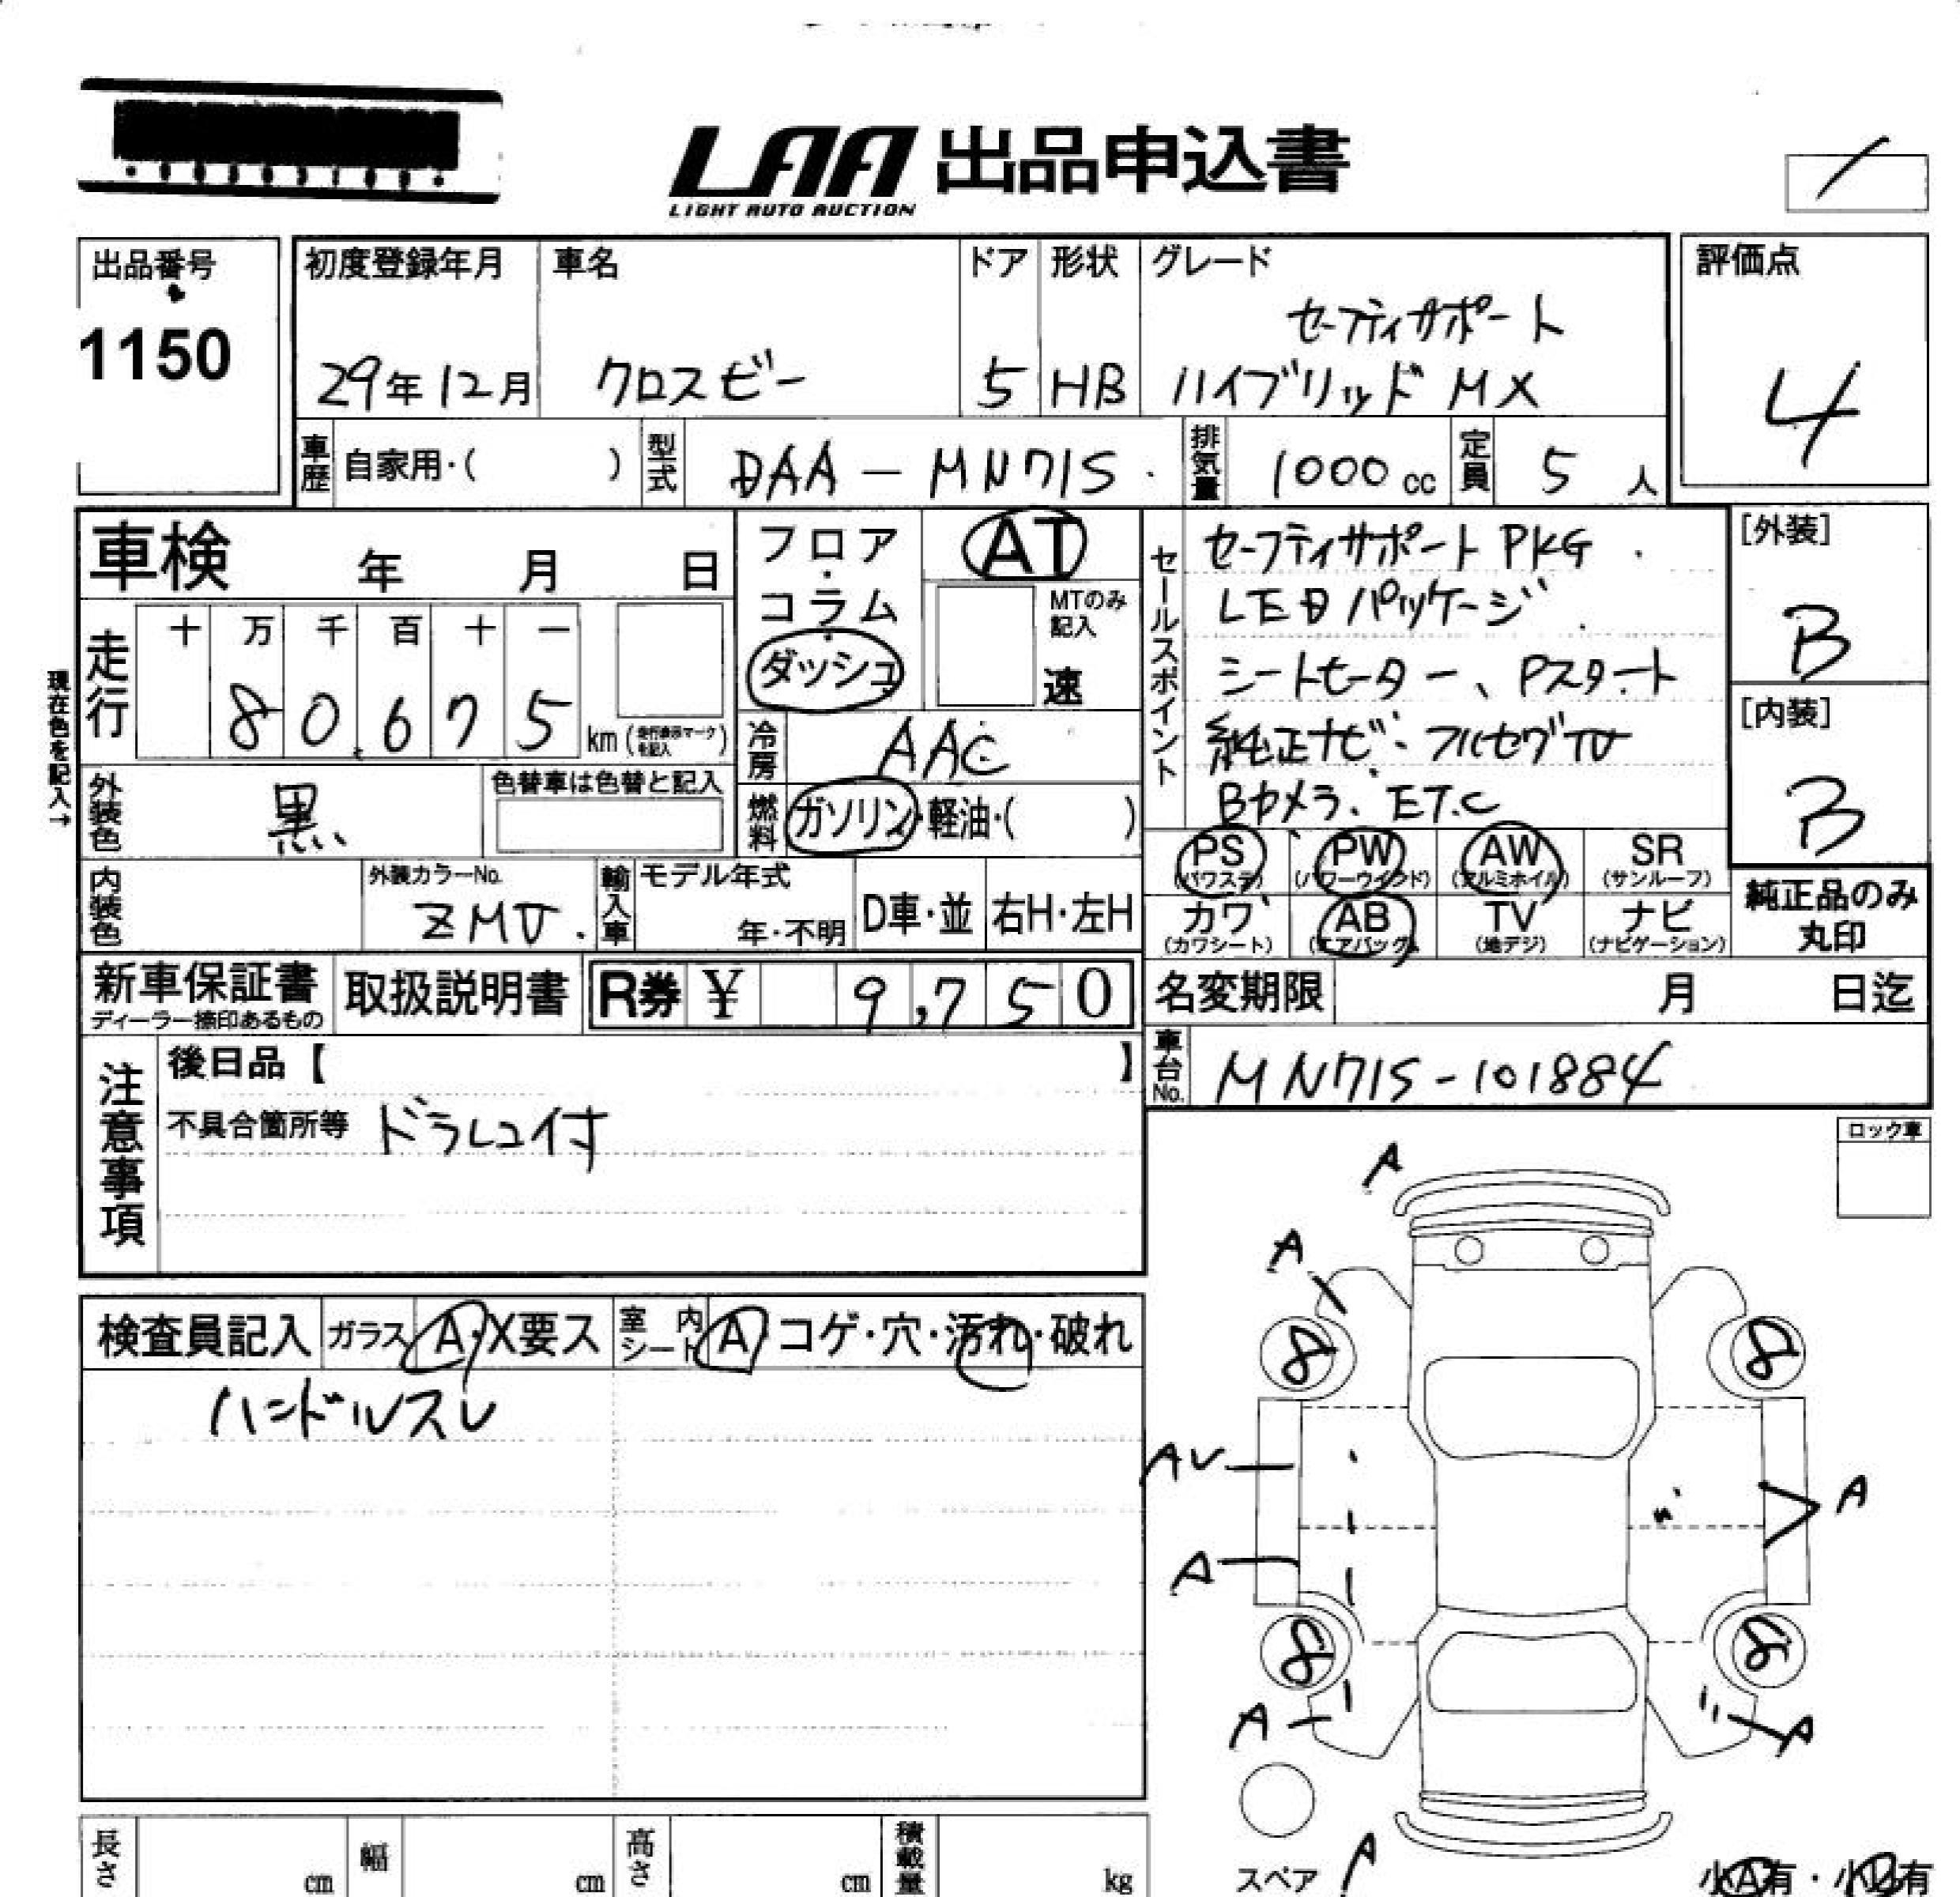 LAA 出品申込書
LIGHT AUTO AUCTION
出品番号
1150
初度登録年月 車名 ドア 形状 グレード
セーフティサポート
29年12月 クロスビー 5 HB ハイブリッド MX
評価点
4
車歴 自家用・( ) 型式 DAA-MN71S 排気量 1000cc 定員 5人
車検 年 月 日
フロア・コラム・ダッシュ
AT
MTのみ記入
速
セールスポイント
セーフティサポートPKG
LEDパッケージ
シートヒーター、Pスタート
純正ナビ・フルセグTV
Bカメラ、ETC
[外装]
B
[内装]
B
現在色を記入→
走行 十 万 千 百 十 一
80,675 km (走行表示マークを記入)
冷房 AAC
外装色 黒 色替車は色替と記入
燃料 ガソリン・軽油・( )
PS (パワステ) PW (パワーウインドウ) AW (アルミホイル) SR (サンルーフ)
カワ (カワシート) AB (エアバッグ) TV (地デジ) ナビ (ナビゲーション)
純正品のみ丸印
内装色 外装カラーNo. ZMV 輸入車 モデル年式 年・不明 D車・並 右H・左H
新車保証書 ディーラー捺印あるもの 取扱説明書 R券 ¥ 9,750
名変期限 月 日迄
車台No. MN71S-101884
注意事項
後日品【 】
不具合箇所等 ドラレコ付
ロック車
検査員記入 ガラス A・X要ス 室内シート A・コゲ・穴・汚れ・破れ
ハンドルスレ
A
A
8 8
AV A
A
8 8
A A
スペア A
小A有・小B有
長さ cm 幅 cm 高さ cm 積載量 kg